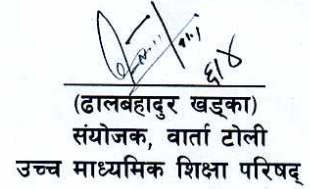 ६।४
(ढालबहादुर खड्का)
संयोजक, वार्ता टोली
उच्च माध्यमिक शिक्षा परिषद्